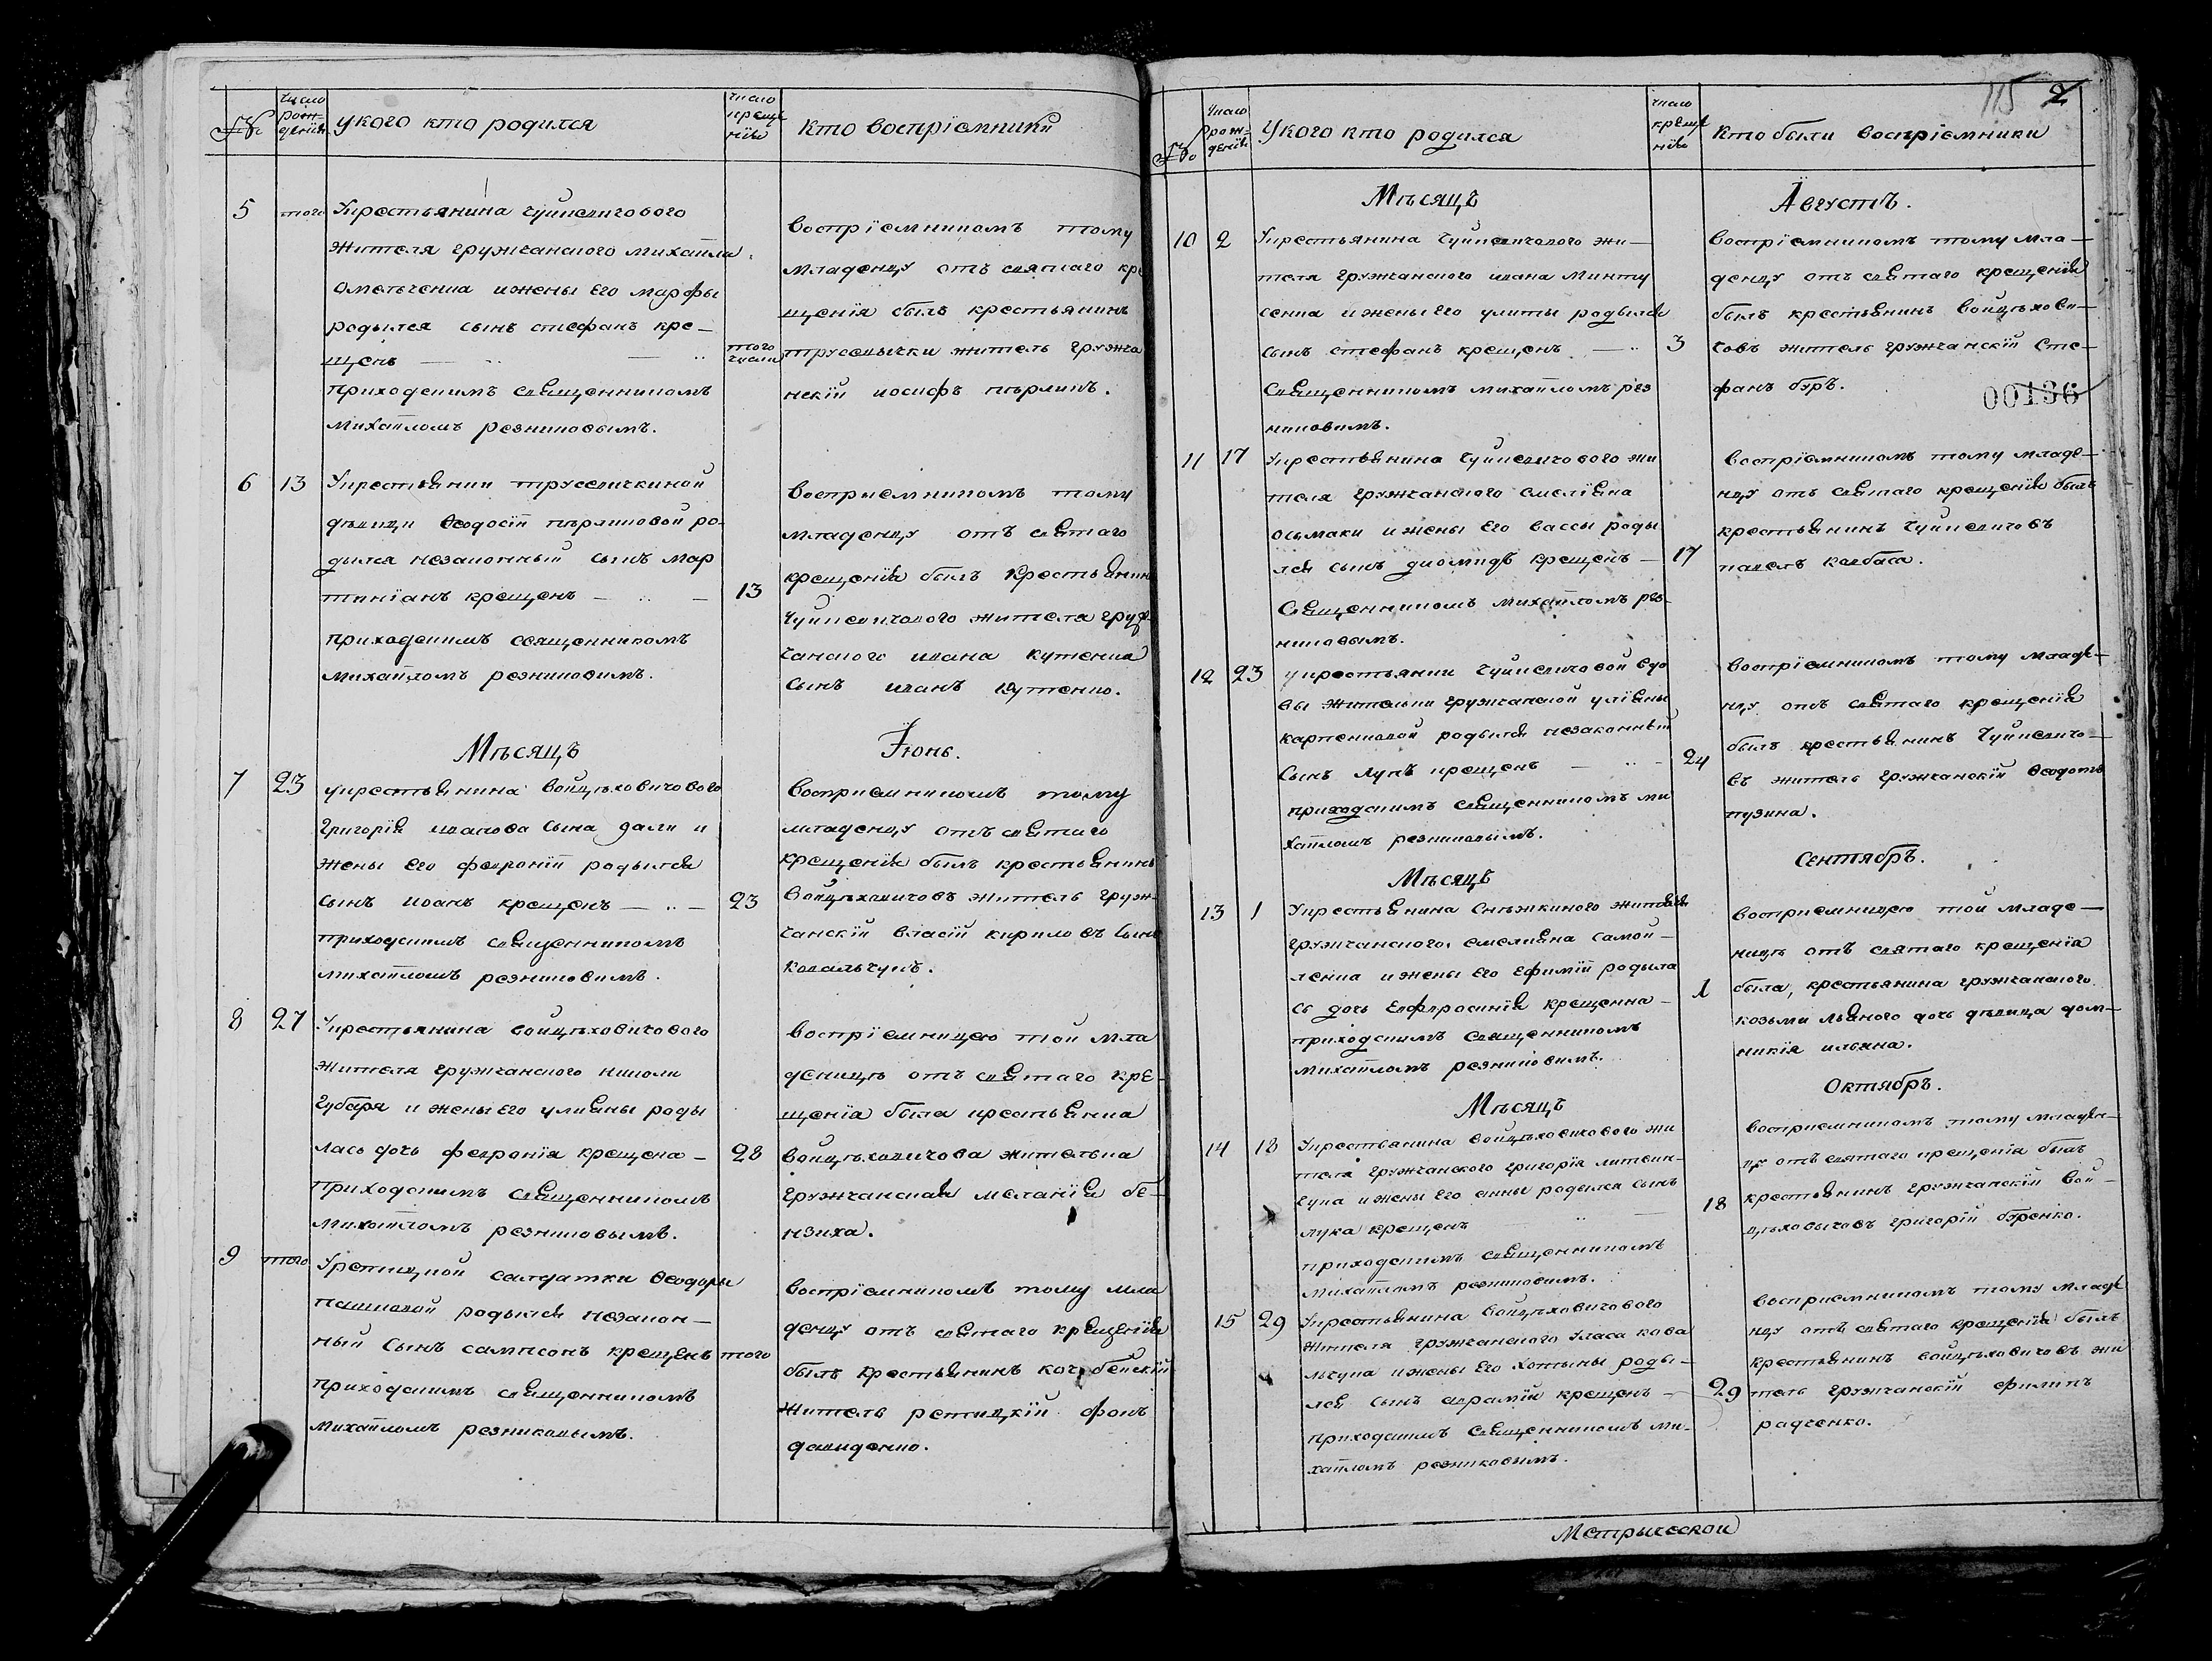 №
число рожденія
у кого кто родился
число крещенія
кто воспріемники
5
того
У крестьянина
жителя гружчанского михаила
омельченка и жены Его марфы
родылся сынъ стефанъ кре—
щенъ
приходскимъ священникомъ
михаиломъ резниковымъ.
того числа
воспріемникомъ тому
младенцу отъ святаго кре
щенія былъ крестьянинъ
житель гружча
нскій иосифъ
6
13
У крестьянки трусевичкиной
дѣвици Ѳеодосіи пѣрликовой ро-
дился незаконный сынъ мар
тиніанъ крещенъ
приходскимъ священникомъ
михаиломъ резниковымъ.
13
воспріемникомъ тому
младенцу отъ святаго
крещенія былъ крестьянина
жителя груж
чанского ивана кутенка
сынъ иванъ кутенко.
Мѣсяцъ
Іюнь.
7
23
у крестьянина войцѣховичового
Григорія иванова сына дали и
жены Его февроніи родылся
сынъ иоанъ крещенъ
приходскимъ священникомъ
михаиломъ резниковымъ.
23
воспріемникомъ тому
младенцу отъ святаго
крещенія былъ крестьянинъ
войцѣховичовъ житель груж-
чанскій власій кириловъ сынъ
ковальчукъ.
8
27
У крестьянина войцѣховичового
жителя гружчанского николи
губаря и жены Его улияны роды
лась дочь февронія крещена —
приходскимъ священникомъ
михаиломъ резниковымъ.
28
воспріемницею той мла
деницѣ отъ святаго кре-
щенія была крестьянка
войцѣховичова жителька
гружчанская меланія бе-
нзиха.
9
того
салдатки Ѳеодоры
пашковой родылся незакон—
ный сынъ сампсонъ крещенъ
приходскимъ священникомъ
михаиломъ резниковымъ.
того
воспріемникомъ тому мла
денцу отъ святаго крещенія
былъ крестьянинъ кочубейскій
житель ретицкій фока
давиденко.
115 2
№
число рожденія
У кого кто родился
число крещенія
кто были воспріемники
Мѣсяцъ
Августъ.
10
2
У крестьянина жи—
теля гружчанского ивана минту
сенка и жены Его улиты родылся
сынъ стефанъ крещенъ
священникомъ михаиломъ рез
никовимъ.
3
воспріемникомъ тому мла—
денцу отъ святаго крещенія
былъ крестьянинъ войцѣхови—
човъ житель гружчанскій сте—
фанъ бэръ.
00136
11
17
У крестьянина жи
теля гружчанского емеліяна
осьмаки и жены Его вассы роды
лся сынъ диомидъ крещенъ —
священникомъ михаиломъ рез-
никовымъ.
17
воспріемникомъ тому младе—
нцу отъ святаго крещенія былъ
крестьянинъ
павелъ ковбаса.
12
23
у крестьянки вдо
вы жительки гружчанской уліяны
карпенковой родылся незаконный
сынъ лупъ крещенъ
приходскимъ священникомъ ми
хаиломъ резниковымъ.
24
воспріемникомъ тому младе—
нцу отъ святаго крещенія
былъ крестьянинъ
въ житель гружчанскій Ѳеодотъ
пузина.
Мѣсяцъ
Сентябръ.
13
1
У крестьянина снѣжкиного жителя
гружчанского, емелияна самой—
ленка и жены Его Ефиміи родыла
сь дочь Евфросинія крещенна—
приходскимъ священникомъ
михаиломъ резниковимъ.
1
воспріемницею той младе—
ницѣ отъ святаго крещенія
была, крестьянина гружчанского
козьми льяного дочь дѣвица дом—
никія ильяна.
Мѣсяцъ
Октябръ.
14
18
У крестьянина войцѣховичового жи
теля гружчанского григорія литвин-
чука и жены Его анны родылся сынъ
лука крещенъ
приходскимъ священникомъ
михаиломъ резниковимъ.
18
воспріемникомъ тому младен—
цу отъ святаго крещенія былъ
крестьянинъ гружчанскій вой—
цѣховичовъ григорій бэренко.
15
29
У крестьянина войцѣховичового
жителя гружчанского Уласа кова
льчука и жены Его хотыны роды—
лся сынъ аврамій крещенъ —
приходскимъ священникомъ ми-
хаиломъ резниковымъ.
29
воспріемникомъ тому младе
нцу отъ святаго крещенія былъ
крестьянинъ войцѣховичовъ жи
тель гружчанскій филипъ
радченко.
Метрической